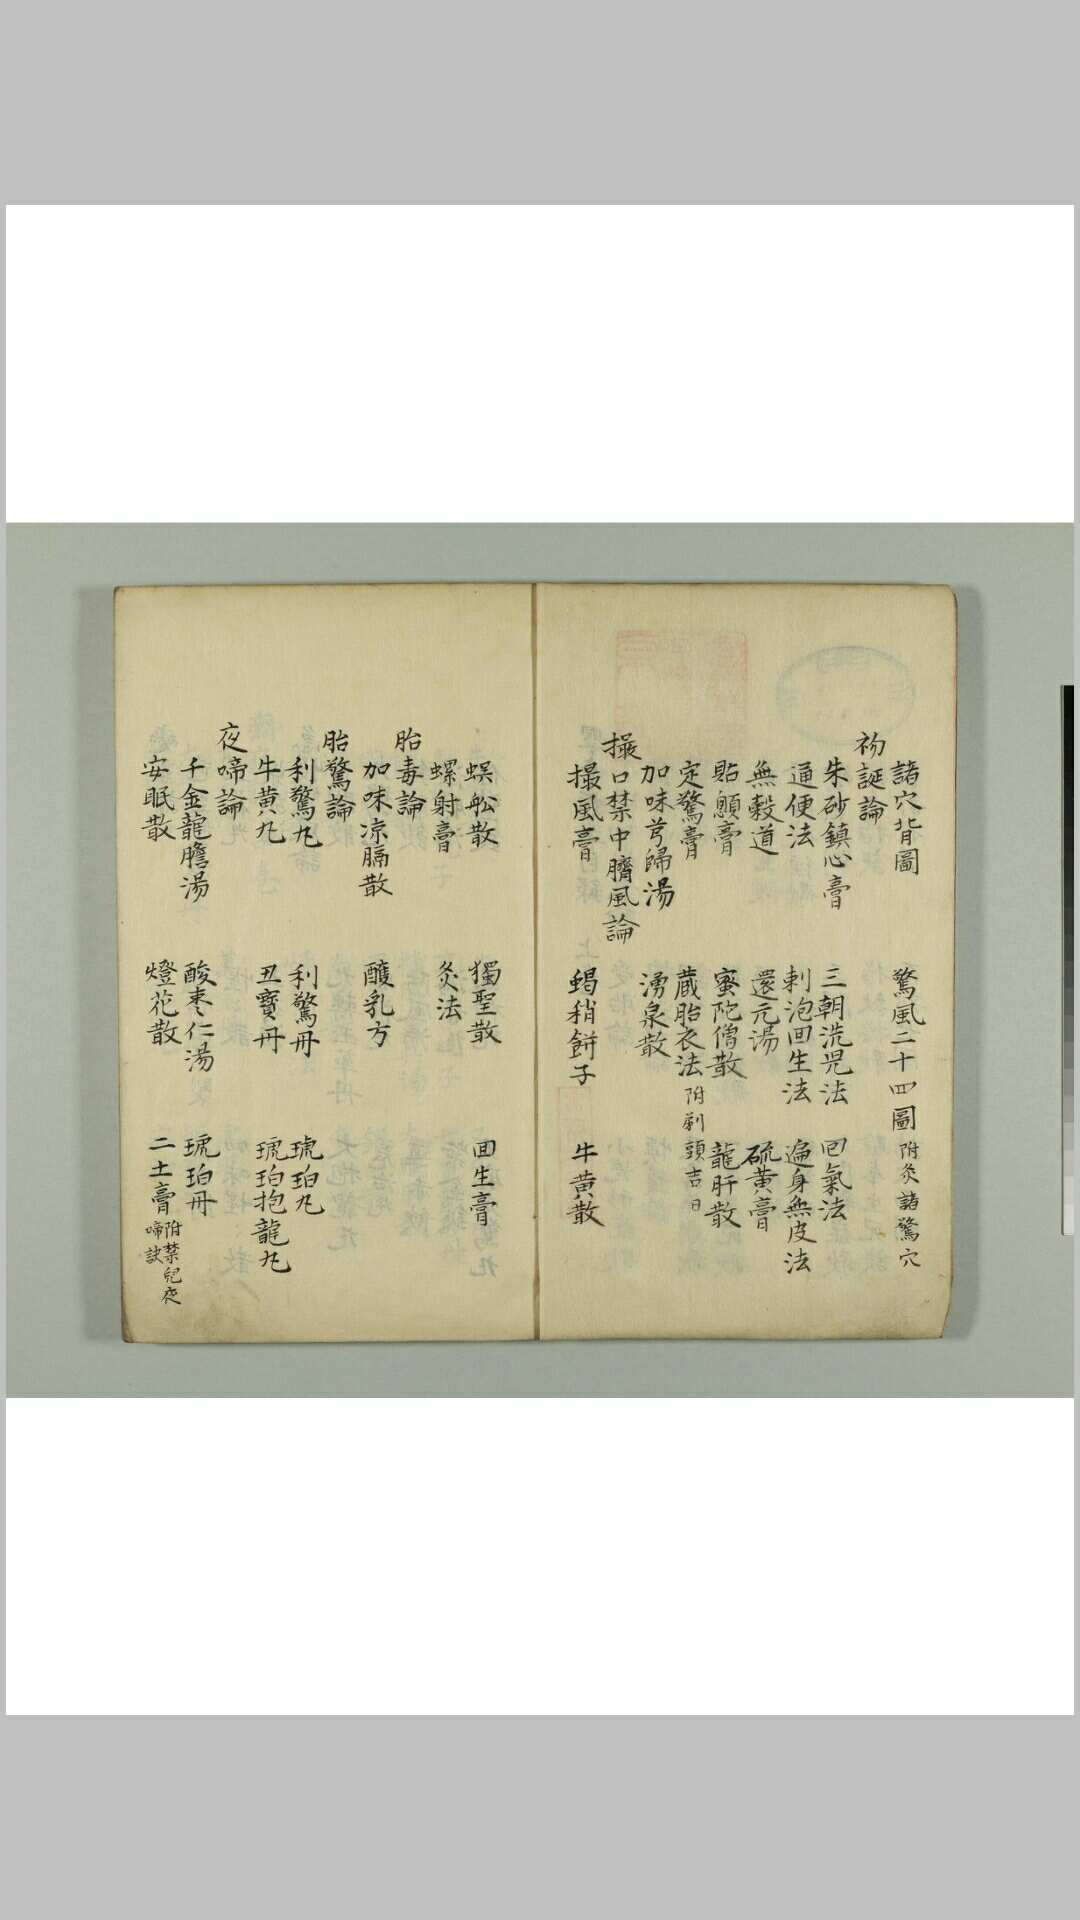 諸穴背圖　驚風二十四圖　附灸諸驚穴
初誕論
朱砂鎮心膏　三朝洗児法　回氣法
通便法　刺泡回生法　遍身無皮法
無穀道　還元湯　硫黄膏
貼顖膏　蜜陀僧散　龍肝散
定驚膏　藏胎衣法　附剃頭吉日
加味芎歸湯　湧泉散
撮口禁中臍風論
撮風膏　蝎稍餅子　牛黄散
蜈蚣散　獨聖散　回生膏
螺射膏　灸法
胎毒論
加味凉膈散　醸乳方
胎驚論
利驚丸　利驚丹　琥珀丸
牛黄丸　丑寶丹　琥珀抱龍丸
夜啼論
千金龍膽湯　酸枣仁湯　琥珀丹
安眠散　燈花散　二土膏　附禁兒夜啼訣